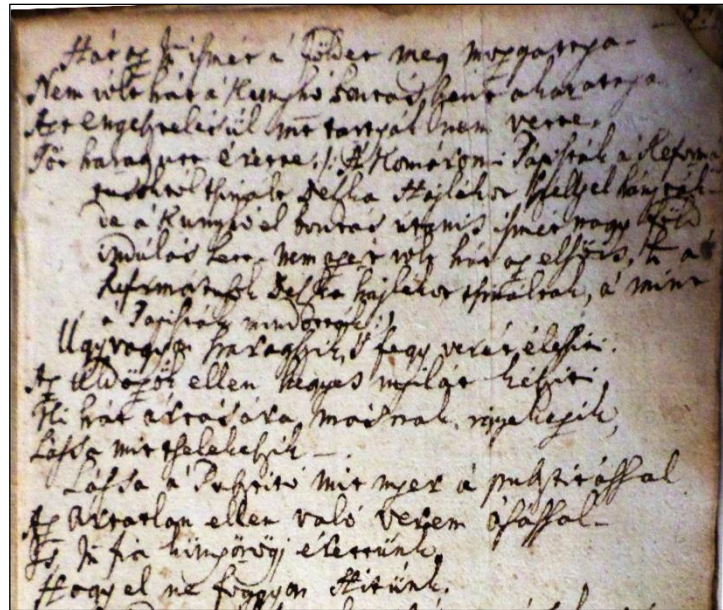 Hát az Isten ismét a földet meg mozgatja
Nem vólt hát a Kunyhó bontás 
Azt engesztelésül mert tartják nem vette,
Tör haragunt érette /: A Komáromi Pápisták a Reform
tusoktól tsinált Deszka Hajlékot 
de a Kunyhó el bontás utánis ismét nagy Föld
indúlás lett. nem azért vólt hát az elsőis, h a
Reformátusok Deszka hajlékot tsináltak, a mint
a Pápisták mondották :/
Úgy vagyon haragszik, s fegyverét élesiti.
Az Üldözők ellen hegyes nyilát késziti
Ki hát ártására másnak igyekezik,
Lássa mit tselekeszik –.
Lássa a Pusztitó mit nyer a pusztitással
Az Ártatlan ellen való verem ásással–
Is fia könyörög érettünk,
Hogy el ne fogyjon Hitünk.